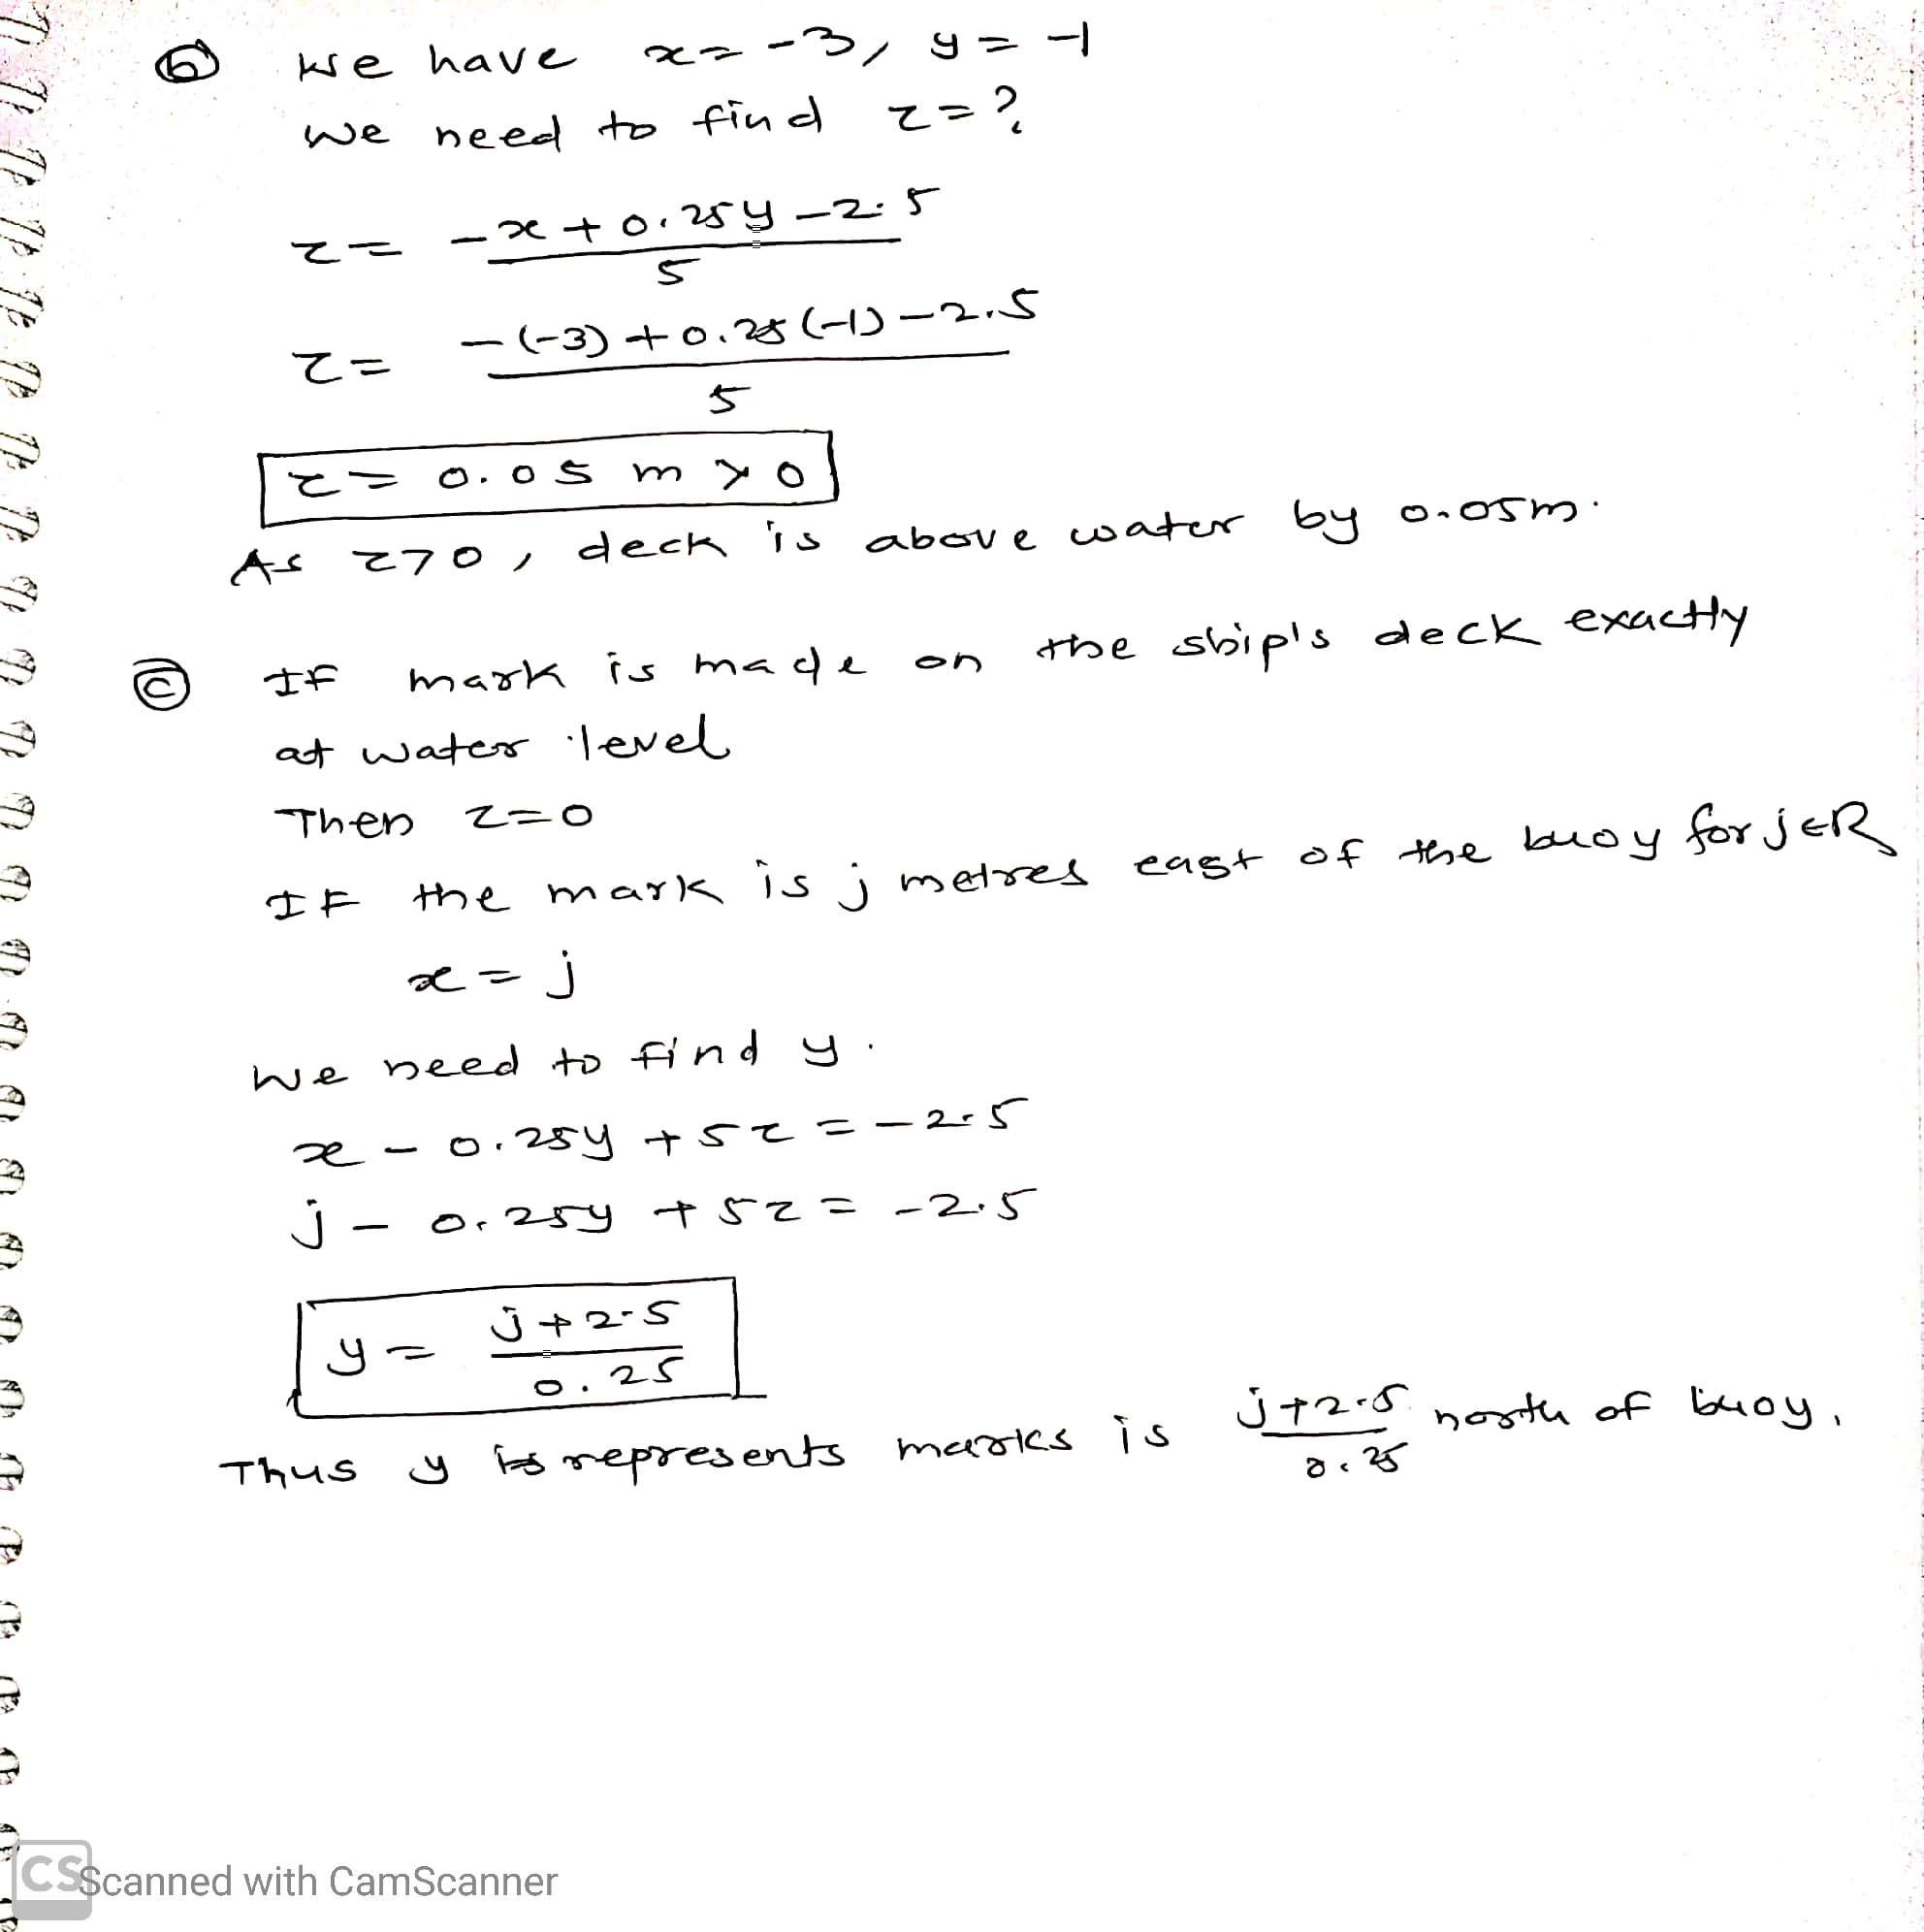 (b) We have x = -3, y = -1
We need to find z = ?
z = (-x + 0.25y - 2.5) / 5
z = (-(-3) + 0.25(-1) - 2.5) / 5
z = 0.05 m > 0
As z>0, deck is above water by 0.05m.
(c) If mark is made on the ship's deck exactly
at water level
Then z=0
If the mark is j metres east of the buoy for j∈R
x = j
We need to find y.
x - 0.25y + 5z = -2.5
j - 0.25y + 5z = -2.5
y = (j+2.5) / 0.25
Thus y represents marks is (j+2.5) / 0.25 north of buoy.
CS Scanned with CamScanner